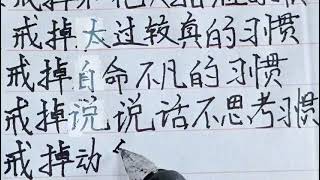 戒掉太过较真的习惯
戒掉自命不凡的习惯
戒掉说说话不思考习惯
戒掉动